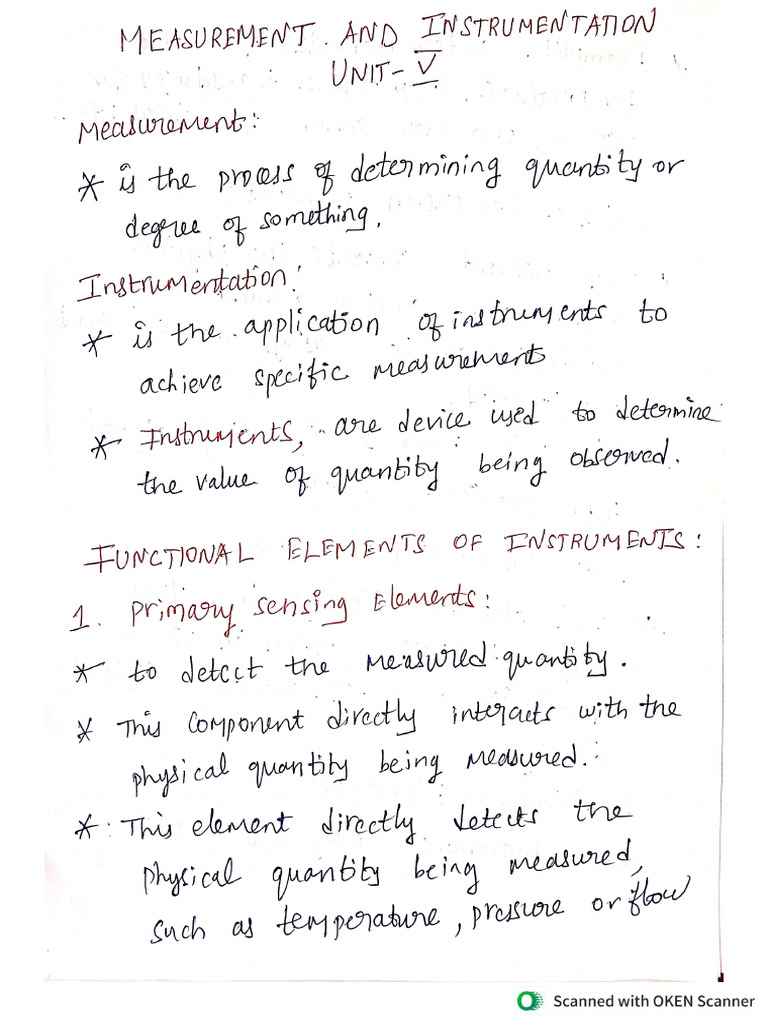 MEASUREMENT AND INSTRUMENTATION
UNIT-V
Measurement:
* is the process of determining quantity or
degree of something.
Instrumentation:
* is the application of instruments to
achieve specific measurements
* Instruments, are device used to determine
the value of quantity being observed.
FUNCTIONAL ELEMENTS OF INSTRUMENTS:
1. Primary Sensing Elements:
* to detect the measured quantity.
* This component directly interacts with the
physical quantity being measured.
* This element directly detects the
physical quantity being measured,
such as temperature, pressure or flow
Scanned with OKEN Scanner